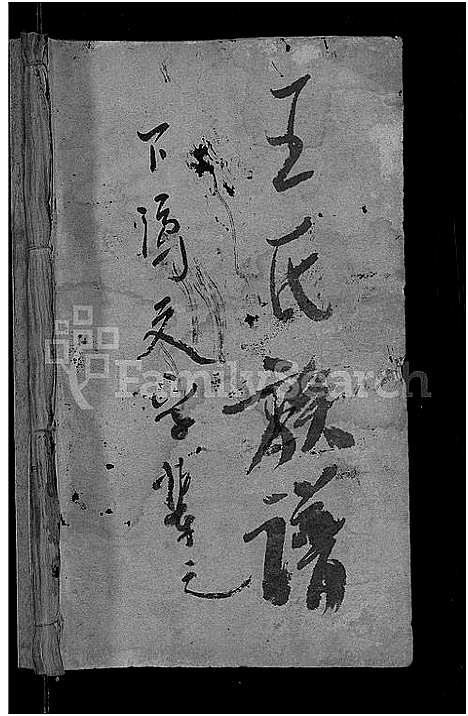 王氏族譜
下河文字輩之
FamilySearch